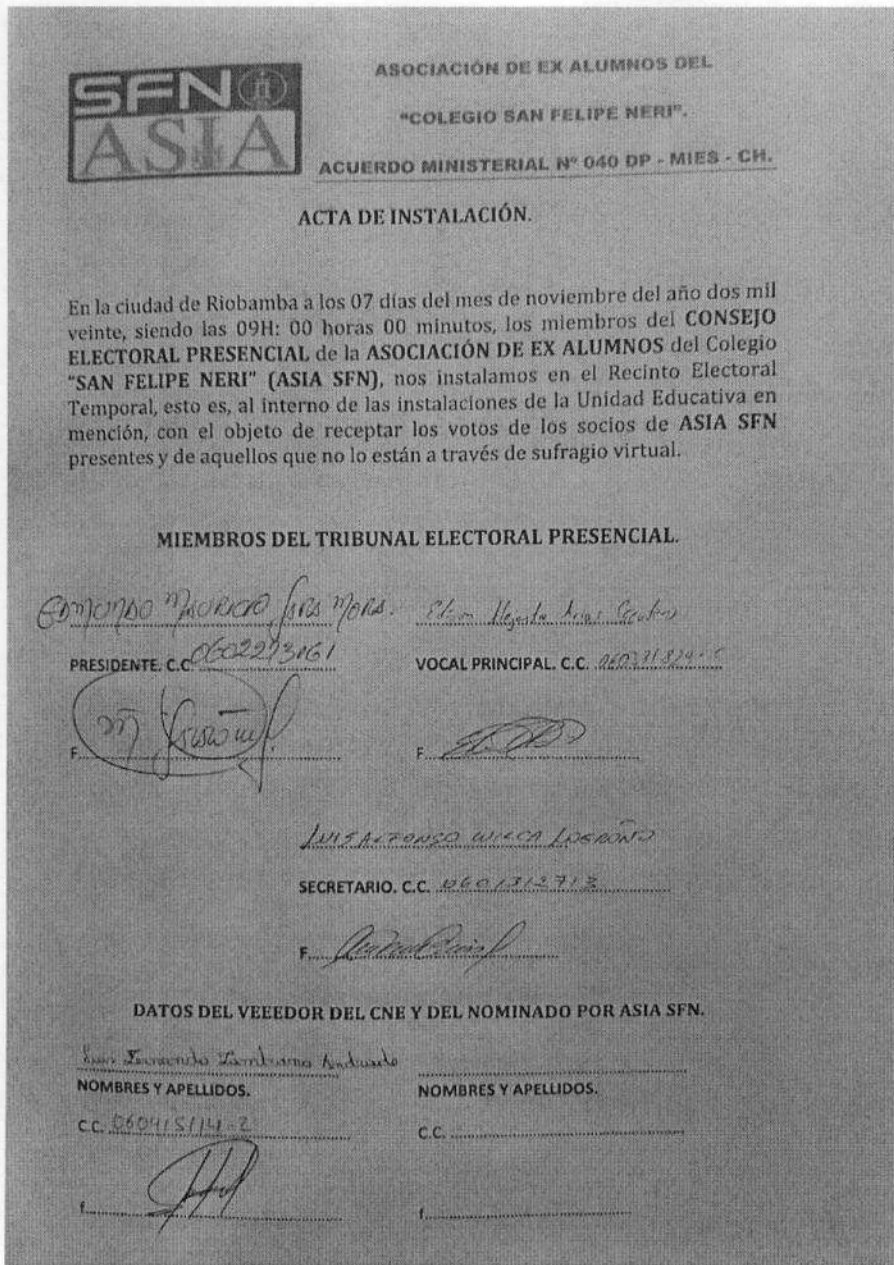 SFN
ASIA
ASOCIACIÓN DE EX ALUMNOS DEL
"COLEGIO SAN FELIPE NERI".
ACUERDO MINISTERIAL Nº 040 DP - MIES - CH.
ACTA DE INSTALACIÓN.
En la ciudad de Riobamba a los 07 días del mes de noviembre del año dos mil
veinte, siendo las 09H: 00 horas 00 minutos, los miembros del CONSEJO
ELECTORAL PRESENCIAL de la ASOCIACIÓN DE EX ALUMNOS del Colegio
"SAN FELIPE NERI" (ASIA SFN), nos instalamos en el Recinto Electoral
Temporal, esto es, al interno de las instalaciones de la Unidad Educativa en
mención, con el objeto de receptar los votos de los socios de ASIA SFN
presentes y de aquellos que no lo están a través de sufragio virtual.
MIEMBROS DEL TRIBUNAL ELECTORAL PRESENCIAL.
EDMUNDO MAURICIO MORA. Arias
PRESIDENTE. C.C VOCAL PRINCIPAL. C.C.
F. F.
LUIS ALFONSO LOGROÑO
SECRETARIO. C.C. 0601312713
F.
DATOS DEL VEEEDOR DEL CNE Y DEL NOMINADO POR ASIA SFN.
Luis Fernando Zambrano Andrade
NOMBRES Y APELLIDOS. NOMBRES Y APELLIDOS.
C.C. C.C.
f. f.